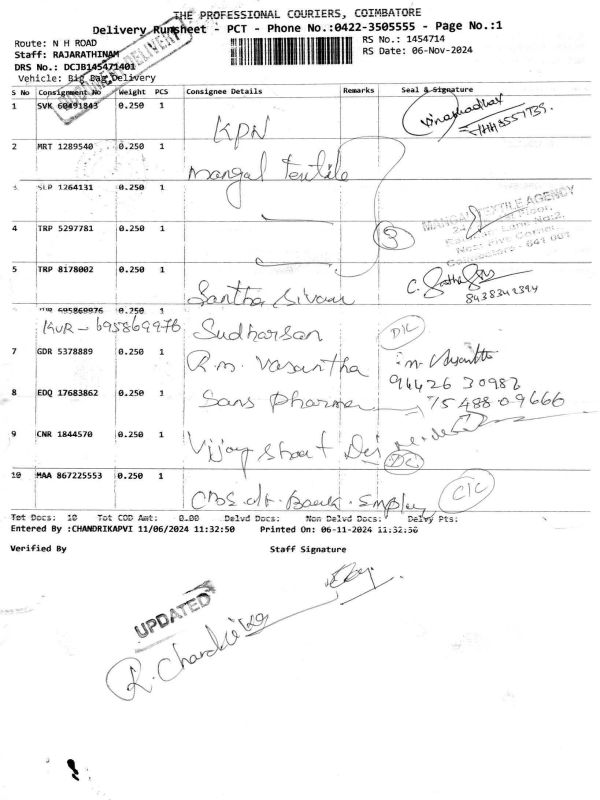 THE PROFESSIONAL COURIERS, COIMBATORE
Delivery Runsheet - PCT - Phone No.:0422-3505555 - Page No.:1
Route: N H ROAD
RS No.: 1454714
Staff: RAJARATHINAM
RS Date: 06-Nov-2024
DRS No.: DCJB145471401
Vehicle: Big Bag Delivery
S No Consignment No Weight PCS Consignee Details Remarks Seal & Signature
1 SVK 60491843 0.250 1 KPN
2 MRT 1289540 0.250 1 Mangal Textile
3 SLP 1264131 0.250 1
MANGAL TEXTILE AGENCY
4 TRP 5297781 0.250 1 3
5 TRP 8178002 0.250 1 Santha Sivam
8438342394
695869976 0.250 1
KUR - 695869976 Sudharsan
7 GDR 5378889 0.250 1 R.m. Vasantha
94426 30982
8 EDQ 17683862 0.250 1 Sans Pharma 75488 09666
9 CNR 1844570 0.250 1 Vijay
10 MAA 867225553 0.250 1 Bank
Tot Docs: 10 Tot COD Amt: 0.00 Delvd Docs: Non Delvd Docs: Delvy Pts:
Entered By :CHANDRIKAPVI 11/06/2024 11:32:50 Printed On: 06-11-2024 11:32:50
Verified By Staff Signature
UPDATED